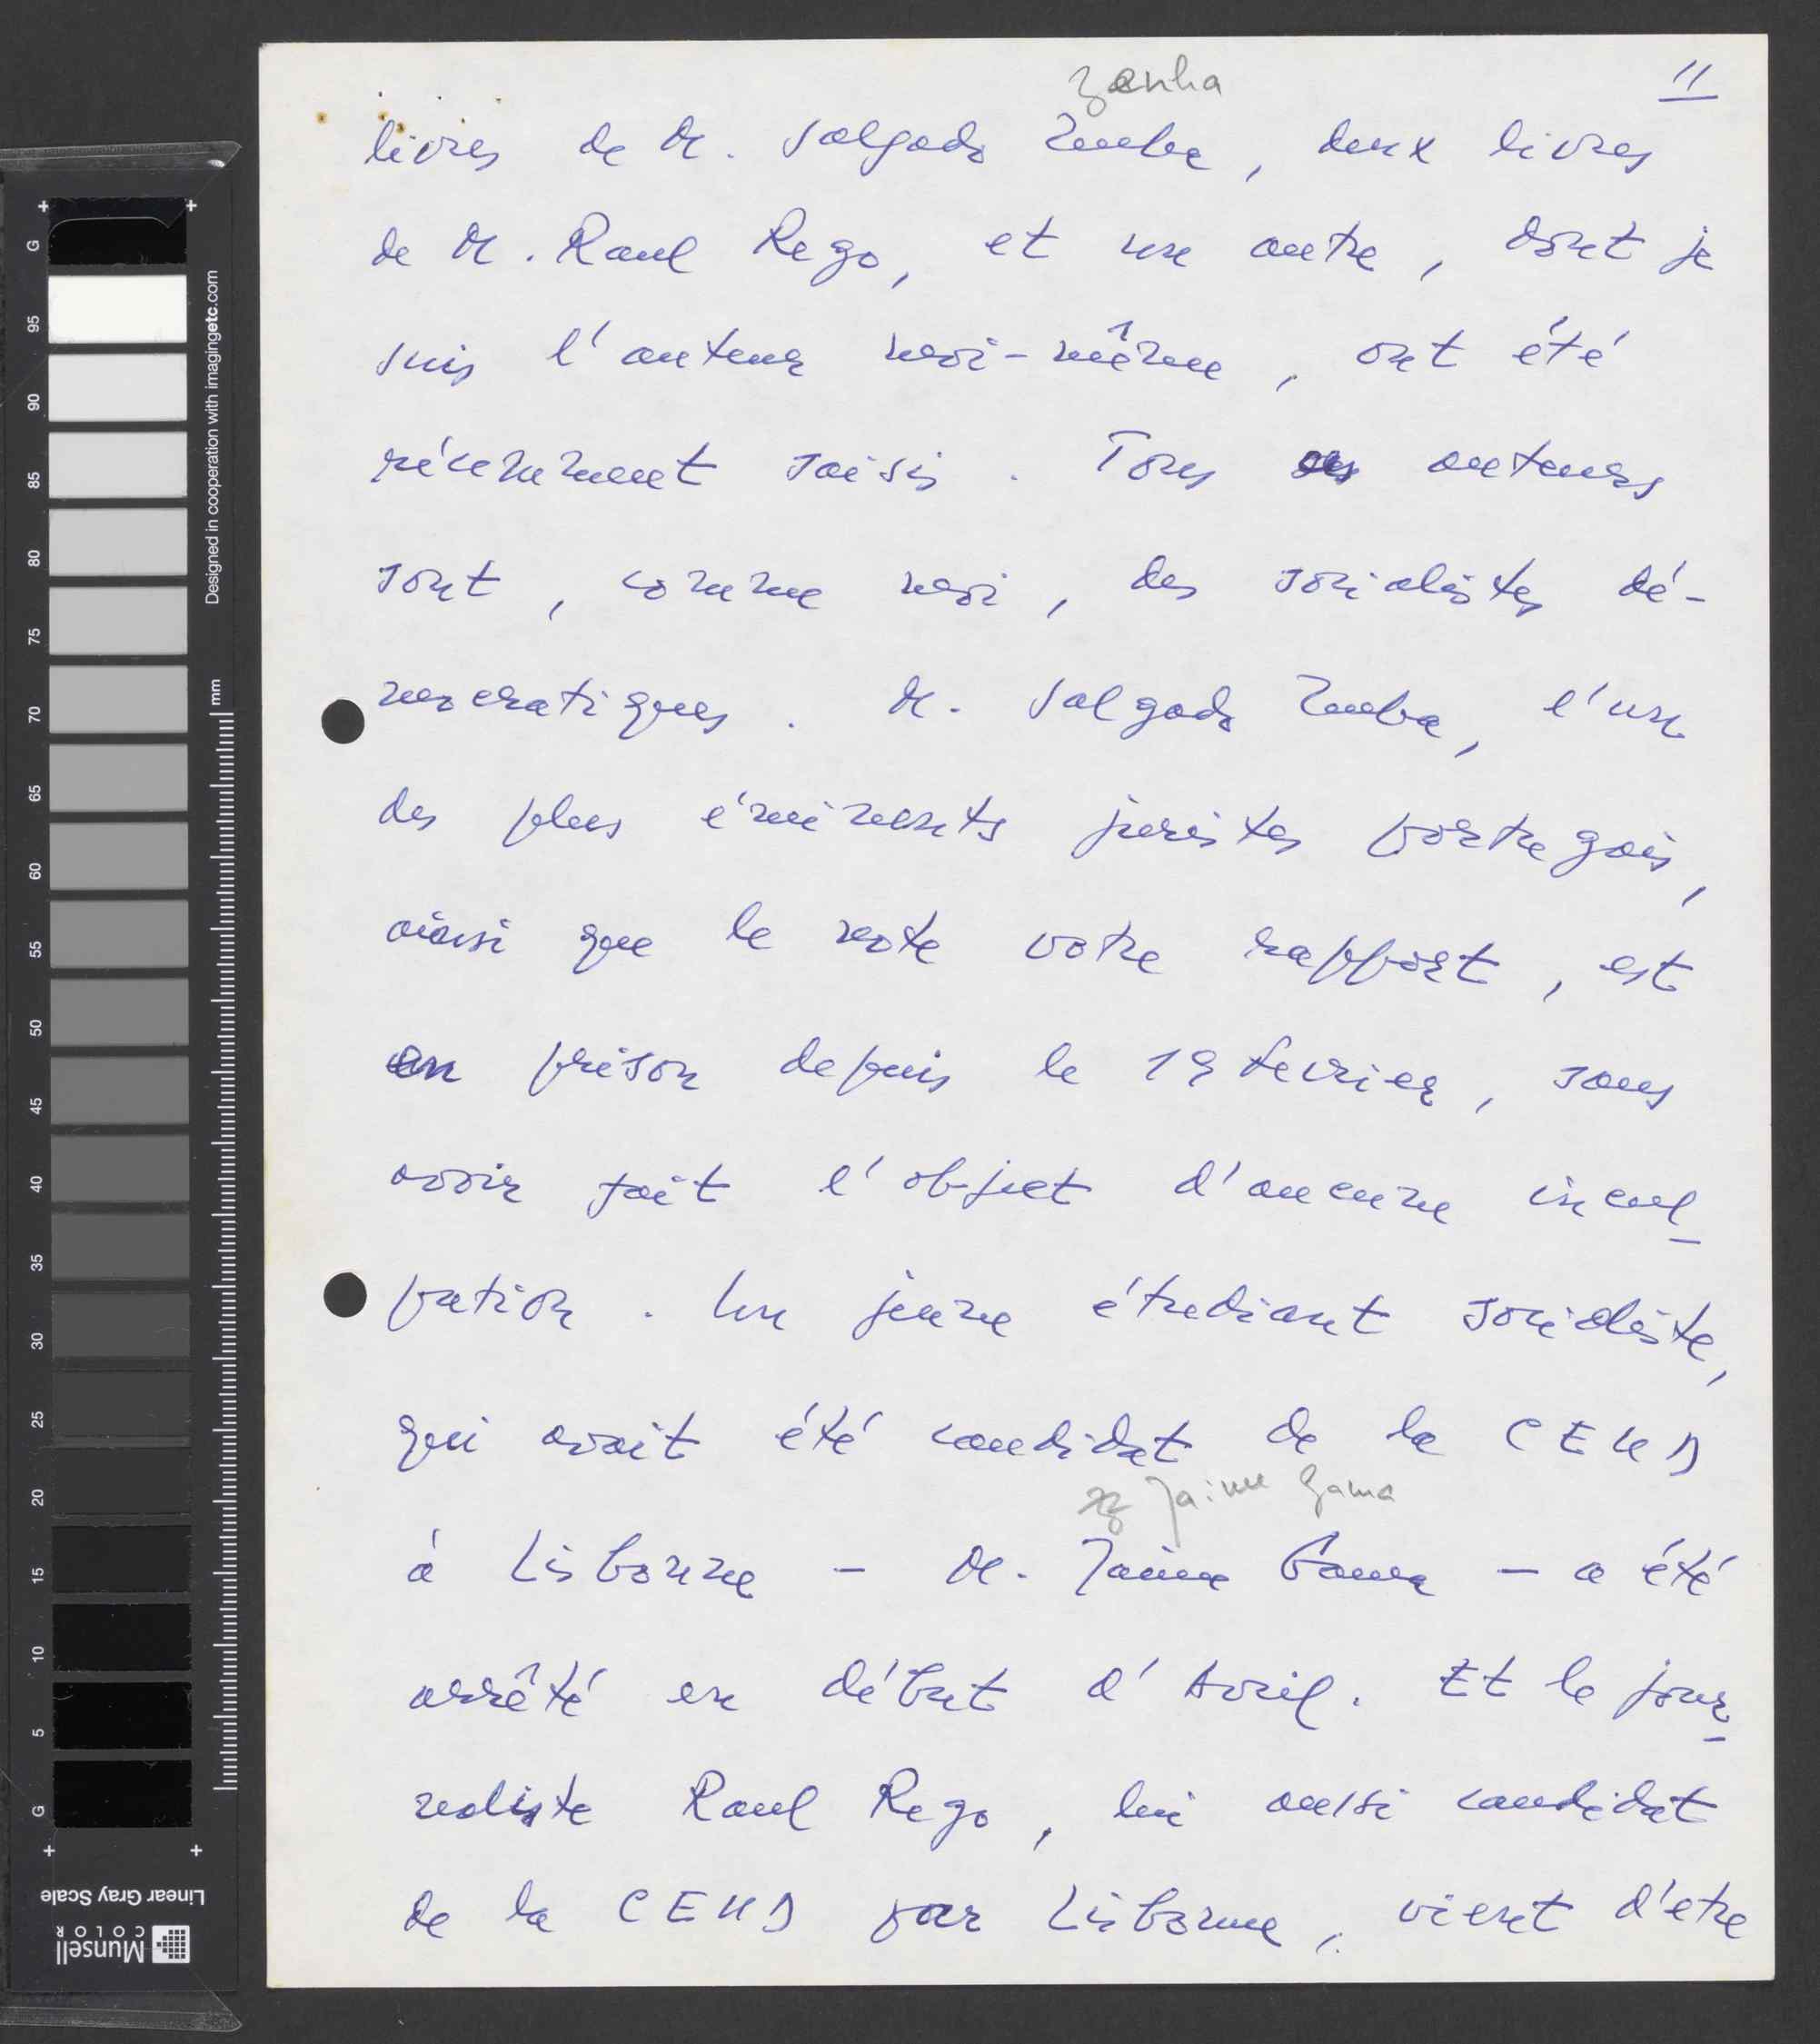 zenha
11
livres de M. Salgado Zenha, deux livres
de M. Raul Rego, et un autre, dont je
suis l'auteur moi-même, ont été
récemment saisis. Tous ces auteurs
sont, comme moi, des socialistes dé-
mocratiques. M. Salgado Zenha, l'un
des plus éminents juristes portugais,
ainsi que le note votre rapport, est
en prison depuis le 19 fevrier, sans
avoir fait l'objet d'aucune incul-
pation. Un jeune étudiant socialiste,
qui avait été candidat de la CEUD
Jaime Gama
à Lisbonne - M. Jaime Gama - a été
arrêté en début d'Avril. Et le jour-
naliste Raul Rego, lui aussi candidat
de la CEUD par Lisbonne, vient d'etre
G
95
90
85
80
75
70
65
60
55
50
45
40
35
30
25
20
15
10
5
G
mm
Designed in cooperation with imagingetc.com
Linear Gray Scale
Munsell
COLOR